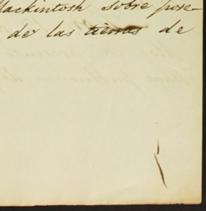 Mackintosh sobre puse-
de las tierras de